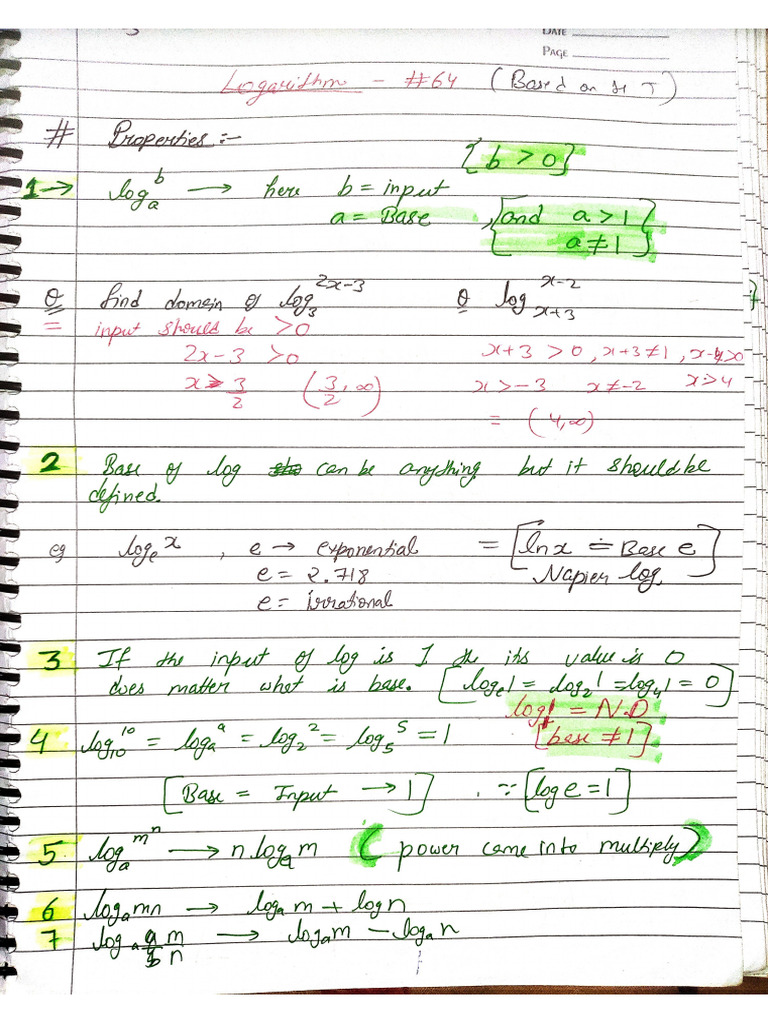 DATE
PAGE
Logarithm - #64 (Based on H T)
# Properties :-
[b > 0]
1 → log_a^b → here b = input
a = Base , and a > 1
a ≠ 1
Q find domain of log_3^(2x-3) Q log_(x+3)^(x-2)
= input should be > 0
2x - 3 > 0 x+3 > 0 , x+3 ≠ 1 , x-4 > 0
x > 3/2 (3/2, ∞) x > -3 x ≠ -2 x > 4
= (4, ∞)
2 Base of log can be anything but it should be
defined.
eg log_e^x , e → exponential = [ln x = Base e]
e = 2.718 Napier log.
e = irrational
3 If the input of log is 1 the its value is 0
does matter what is base. [log_e 1 = log_2 1 = log_4 1 = 0]
log_1 1 = N.D
4 log_10^10 = log_a^a = log_2^2 = log_5^5 = 1 [base ≠ 1]
[Base = Input → 1] . ∵ [log e = 1]
5 log_a^(m^n) → n.log_a m (power came into multiply)
6 log_a mn → log_a m + log n
7 log_a m/n → log_a m - log_a n